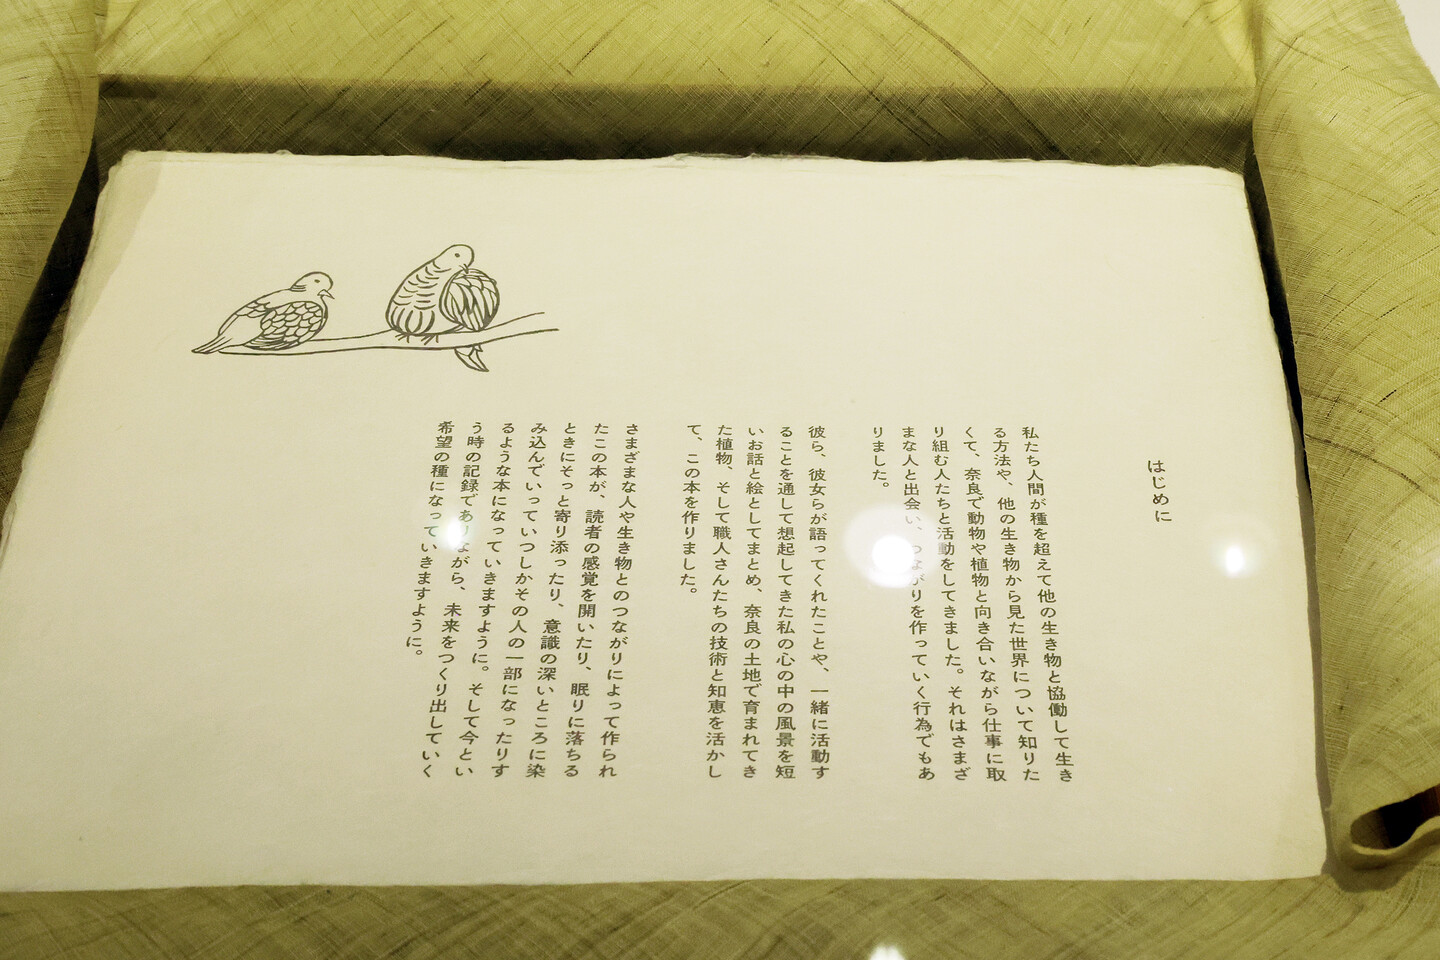 はじめに
私たち人間が種を超えて他の生き物と協働して生き
る方法や、他の生き物から見た世界について知りた
くて、奈良で動物や植物と向き合いながら仕事に取
り組む人たちと活動をしてきました。それはさまざ
まな人と出会い、つながりを作っていく行為でもあ
りました。
彼ら、彼女らが語ってくれたことや、一緒に活動す
ることを通して想起してきた私の心の中の風景を短
いお話と絵としてまとめ、奈良の土地で育まれてき
た植物、そして職人さんたちの技術と知恵を活かし
て、この本を作りました。
さまざまな人や生き物とのつながりによって作られ
たこの本が、読者の感覚を開いたり、眠りに落ちる
ときにそっと寄り添ったり、意識の深いところに染
み込んでいっていつしかその人の一部になったりす
るような本になっていきますように。そして今とい
う時の記録でありながら、未来をつくり出していく
希望の種になっていきますように。